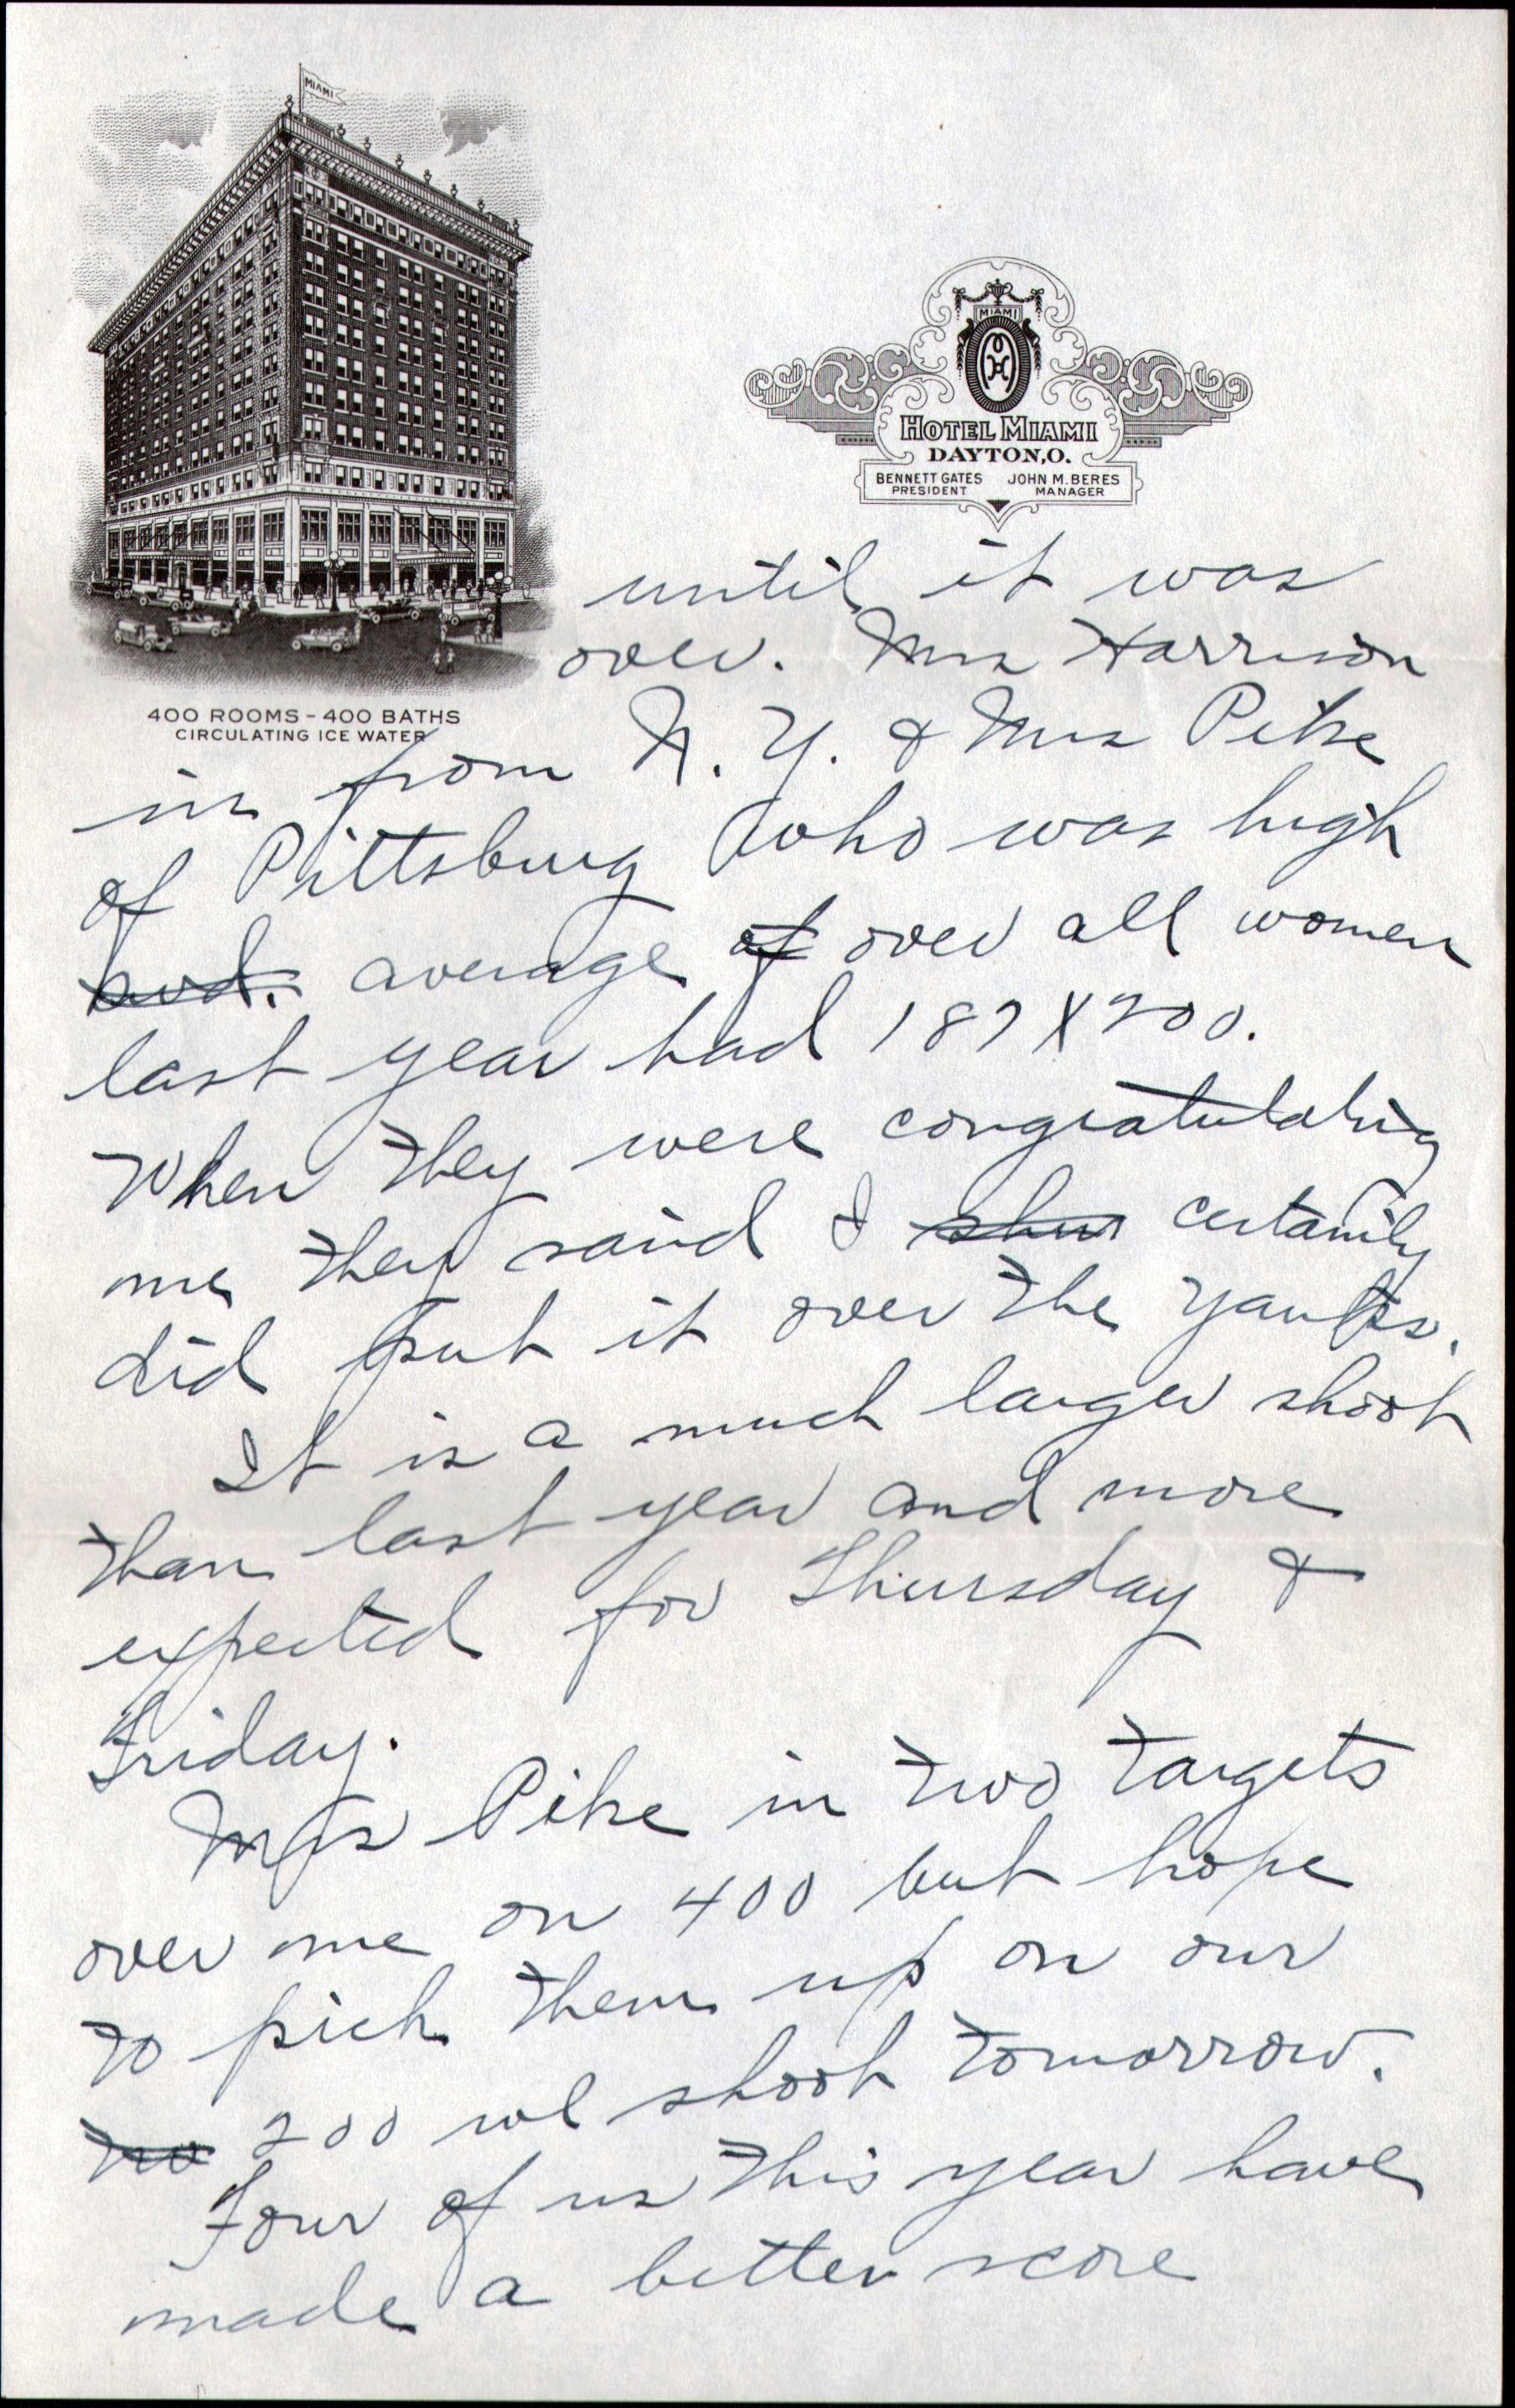 MIAMI
MIAMI
HOTEL MIAMI
DAYTON, O.
BENNETT GATES PRESIDENT
JOHN M. BERES MANAGER
400 ROOMS - 400 BATHS
CIRCULATING ICE WATER
until it was
over. Mrs Harrison
in from N. Y. & Mrs Pike
of Pittsburg who was high
average of over all women
last year had 187 X 200.
When they were congratulating
me they said I certainly
did put it over the Yanks.
It is a much larger shoot
than last year and more
expected for Thursday &
Friday.
Mrs Pike in two targets
over me on 400 but hope
to pick them up on our
200 we shoot tomorrow.
Four of us this year have
made a better score